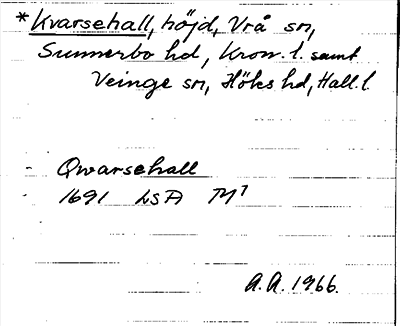 * Kvarsehall, höjd, Vrå sn,
Sunnerbo hd, Kron. l. samt
Veinge sn, Höks hd, Hall. l.
- Qvarsehall
- 1691 LSA M¹
A.A. 1966.